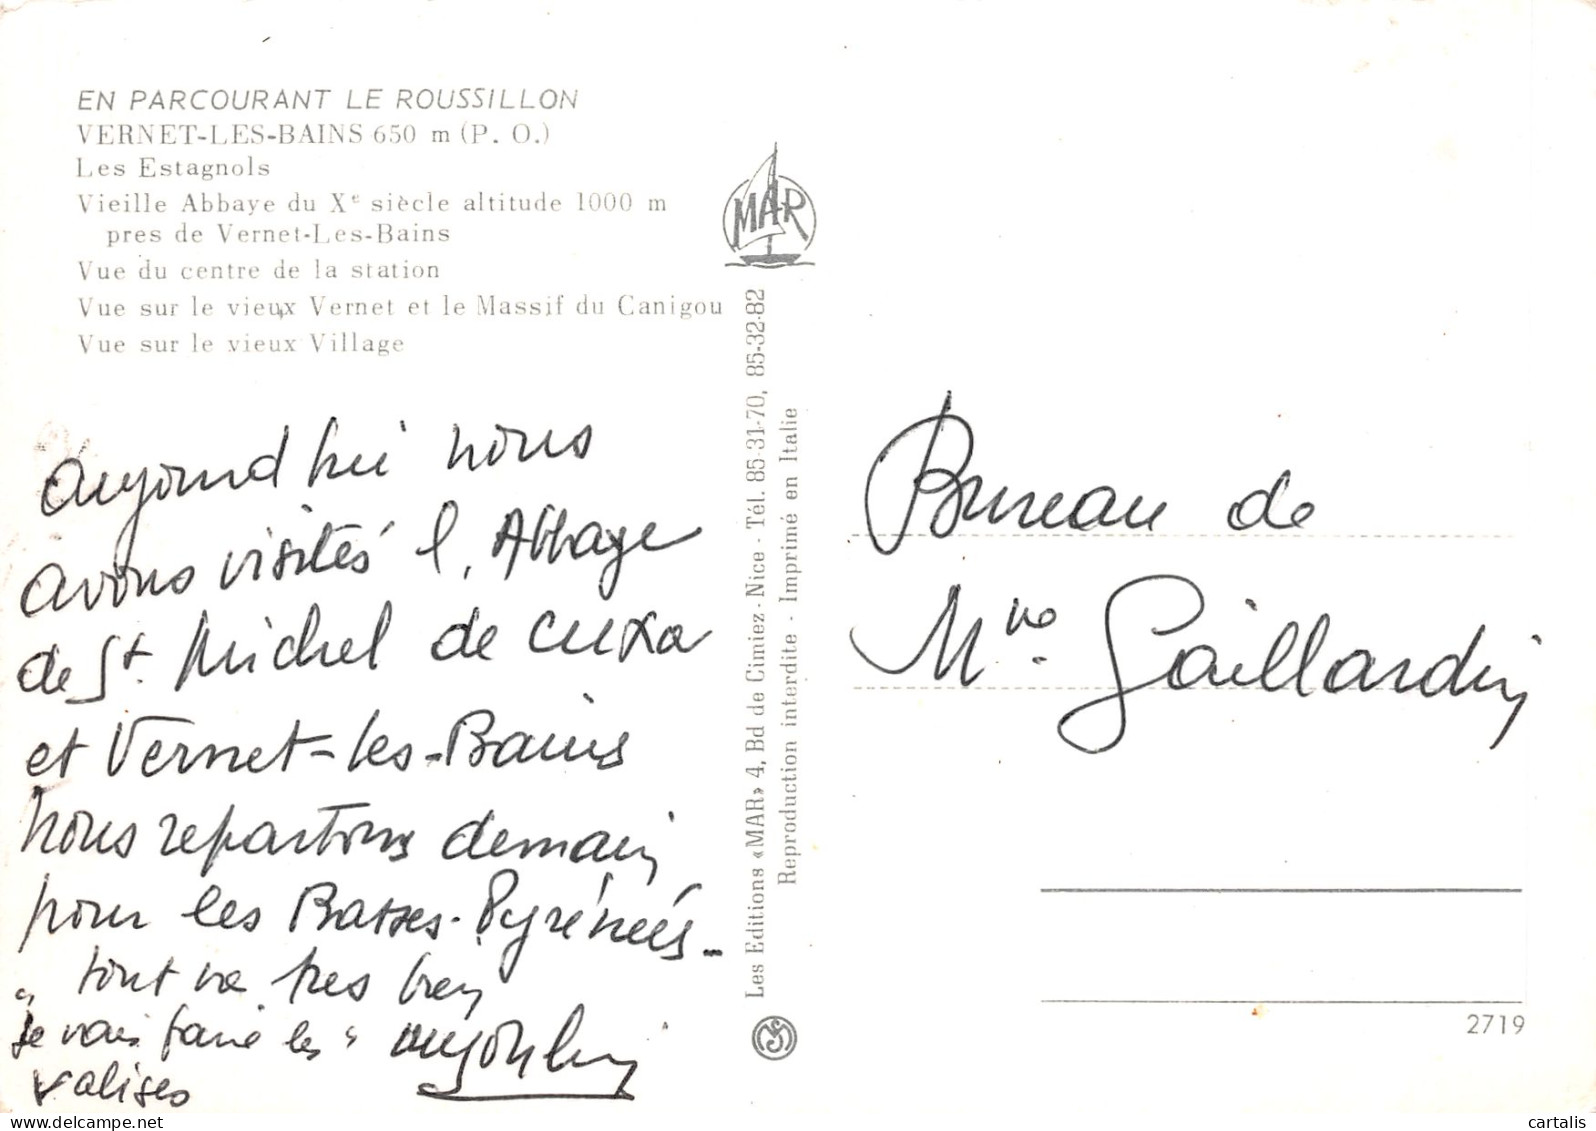 EN PARCOURANT LE ROUSSILLON
VERNET-LES-BAINS 650 m (P. O.)
Les Estagnols
Vieille Abbaye du Xe siècle altitude 1000 m
pres de Vernet-Les-Bains
Vue du centre de la station
Vue sur le vieux Vernet et le Massif du Canigou
Vue sur le vieux Village
aujourd'hui nous
avons visités l'Abbaye
de St. Michel de Cuxa
et Vernet-les-Bains
nous repartons demain
pour les Basses-Pyrénées -
" tout va tres bien
Je vais faire les "
valises
MAR
Les Editions «MAR» 4, Bd de Cimiez - Nice - Tél. 85-31-70, 85-32-82
Reproduction interdite - Imprimé en Italie
Bureau de
Mme. Gaillardin
2719
cartalis
www.delcampe.net